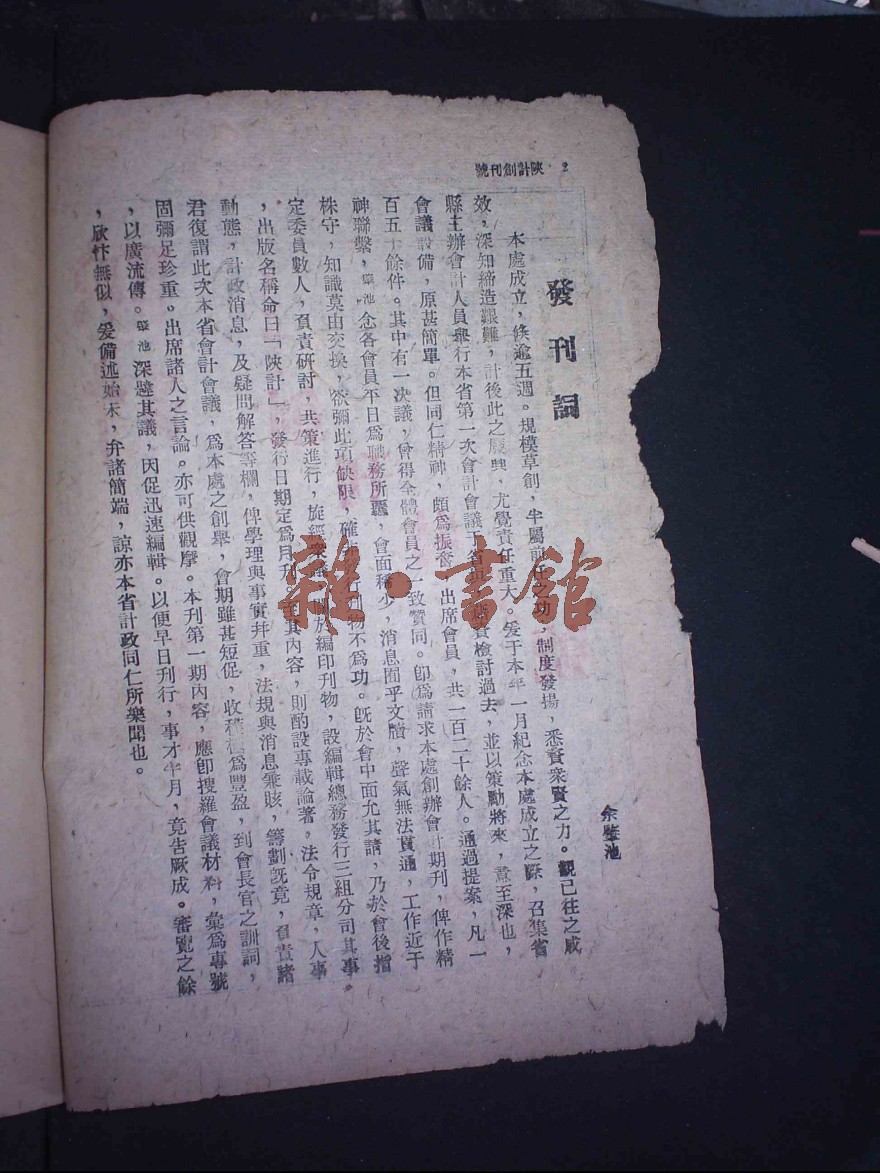 2 陝計創刊號
發刊詞
余肇池
本處成立，倐逾五週。規模草創，半屬前任之功，制度發揚，悉資衆賢之力。觀已往之成
效，深知締造艱難，計後此之展興，尤覺責任重大。爰于本年一月紀念本處成立之際，召集省
縣主辦會計人員舉行本省第一次會計會議于省檢討過去，並以策勵將來，意至深也，
會議設備，原甚簡單。但同仁精神，頗爲振奮，出席會員，共一百二十餘人。通過提案，凡一
百五十餘件。其中有一决議，曾得全體會員之一致贊同。卽爲請求本處創辦會計期刊，俾作精
神聯繫，肇池念各會員平日爲職務所覊，會面稀少，消息囿乎文牘，聲氣無法貫通，工作近于
株守，知識莫由交換，欲彌此項缺限，確非刊物不爲功。旣於會中面允其請，乃於會後指
定委員數人，負責研討，共策進行，旋經衆於編印刊物，設編輯總務發行三組分司其事。
，出版名稱命曰「陝計」，發行日期定爲月刊。至其內容，則酌設專載論著，法令規章，人事
動態，計政消息，及疑問解答等欄，俾學理與事實幷重，法規與消息兼賅，籌劃旣竟，負責諸
君復謂此次本省會計會議，爲本處之創舉，會期雖甚短促，收穫極爲豐盈，到會長官之訓詞，
固彌足珍重。出席諸人之言論。亦可供觀摩。本刊第一期內容，應卽搜羅會議材料，彙爲專號
，以廣流傳。肇池深韙其議，因促迅速編輯。以便早日刊行，事才半月，竟告厥成。審覽之餘
，欣忭無似，爰備述始末，弁諸簡端，諒亦本省計政同仁所樂聞也。
雜·書館